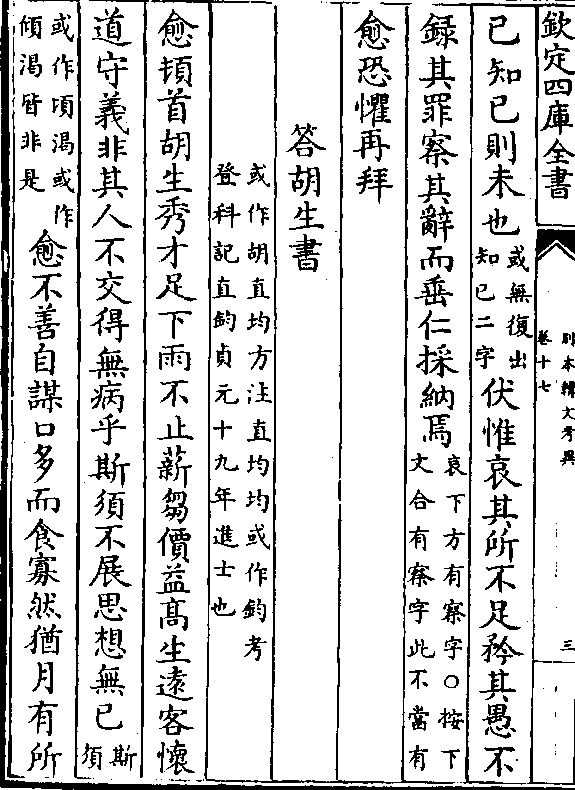 欽定四庫全書
別本韓文考異
卷十七
三
已知已則未也或無復出知已二字伏惟哀其所不足矜其愚不
録其罪察其辭而垂仁採納焉哀下方有察字○按下文合有察字此不當有
愈恐懼再拜
答胡生書
或作胡直均方注直均均或作鈞考登科記直鈞貞元十九年進士也
愈頓首胡生秀才足下雨不止薪芻價益高生遠客懷
道守義非其人不交得無病乎斯須不展思想無已斯須
或作項渴或作傾渴皆非是愈不善自謀口多而食寡然猶月有所